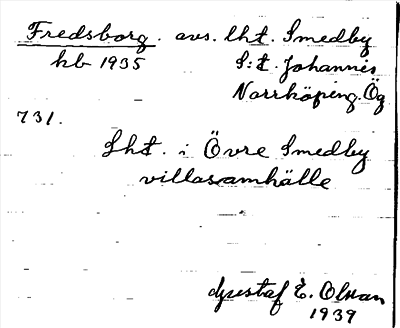 Fredsborg. avs. lht. Smedby
kb 1935 S:t. Johannis
Norrköping. Ög
731.
Lht. i Övre Smedby
villasamhälle
Gustaf E. Olsson
1939